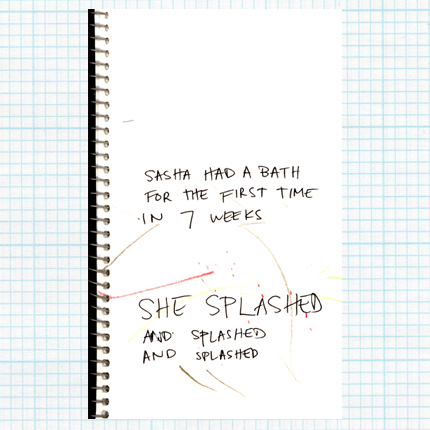 SASHA HAD A BATH
FOR THE FIRST TIME
IN 7 WEEKS
SHE SPLASHED
AND SPLASHED
AND SPLASHED